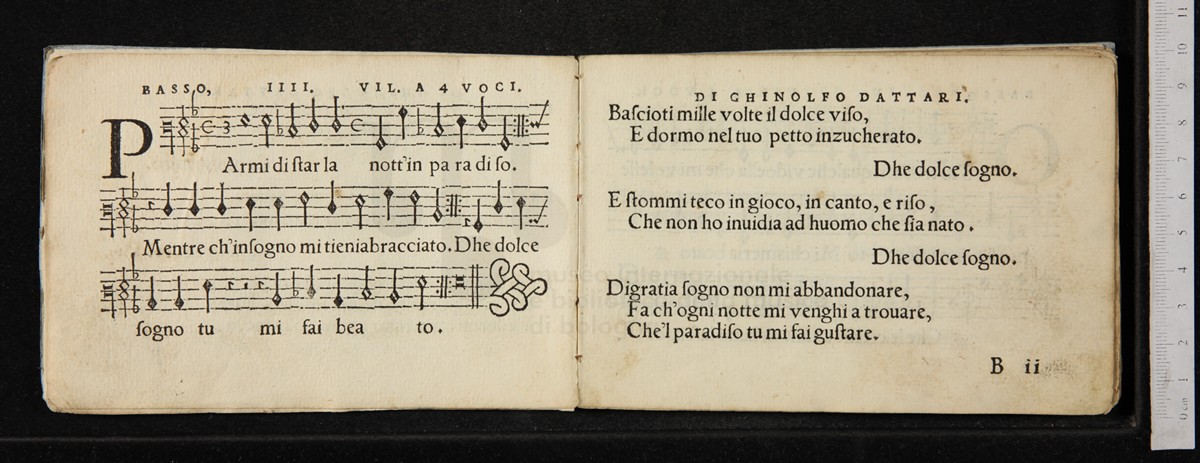 BASSO, IIII. VIL. A 4 VOCI.
PArmi di ſtar la nott'in pa ra di ſo.
Mentre ch'inſogno mi tieniabracciato. Dhe dolce
ſogno tu mi fai bea to.
DI GHINOLFO DATTARI.
Baſcioti mille volte il dolce viſo,
E dormo nel tuo petto inzucherato.
Dhe dolce ſogno.
E ſtommi teco in gioco, in canto, e riſo,
Che non ho inuidia ad huomo che ſia nato.
Dhe dolce ſogno.
Digratia ſogno non mi abbandonare,
Fa ch'ogni notte mi venghi a trouare,
Che'l paradiſo tu mi fai guſtare.
B ii
museo internazionale
e biblioteca della musica
di bologna
0 cm 1 2 3 4 5 6 7 8 9 10 11